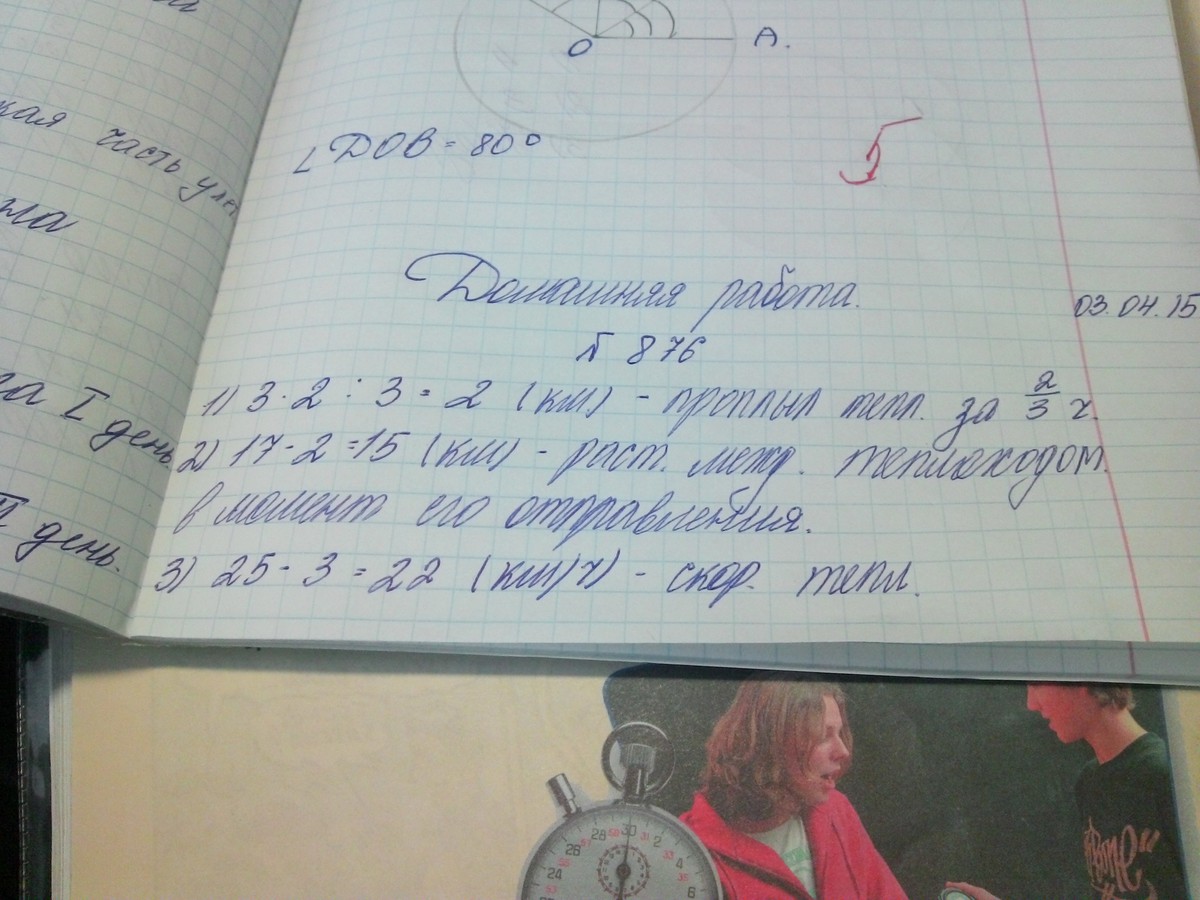 O
A.
∠DOB = 80°
Домашняя работа.
03.04.15
№ 876
1) 3·2:3=2 (км) - проплыл тепл. за 2/3 ч.
2) 17-2=15 (км) - раст. межд. теплоходом.
в момент его отправления.
3) 25-3=22 (км/ч) - скор. тепл.
кая часть
ла
за I день.
II день.
28 30 2
26 4
24 6